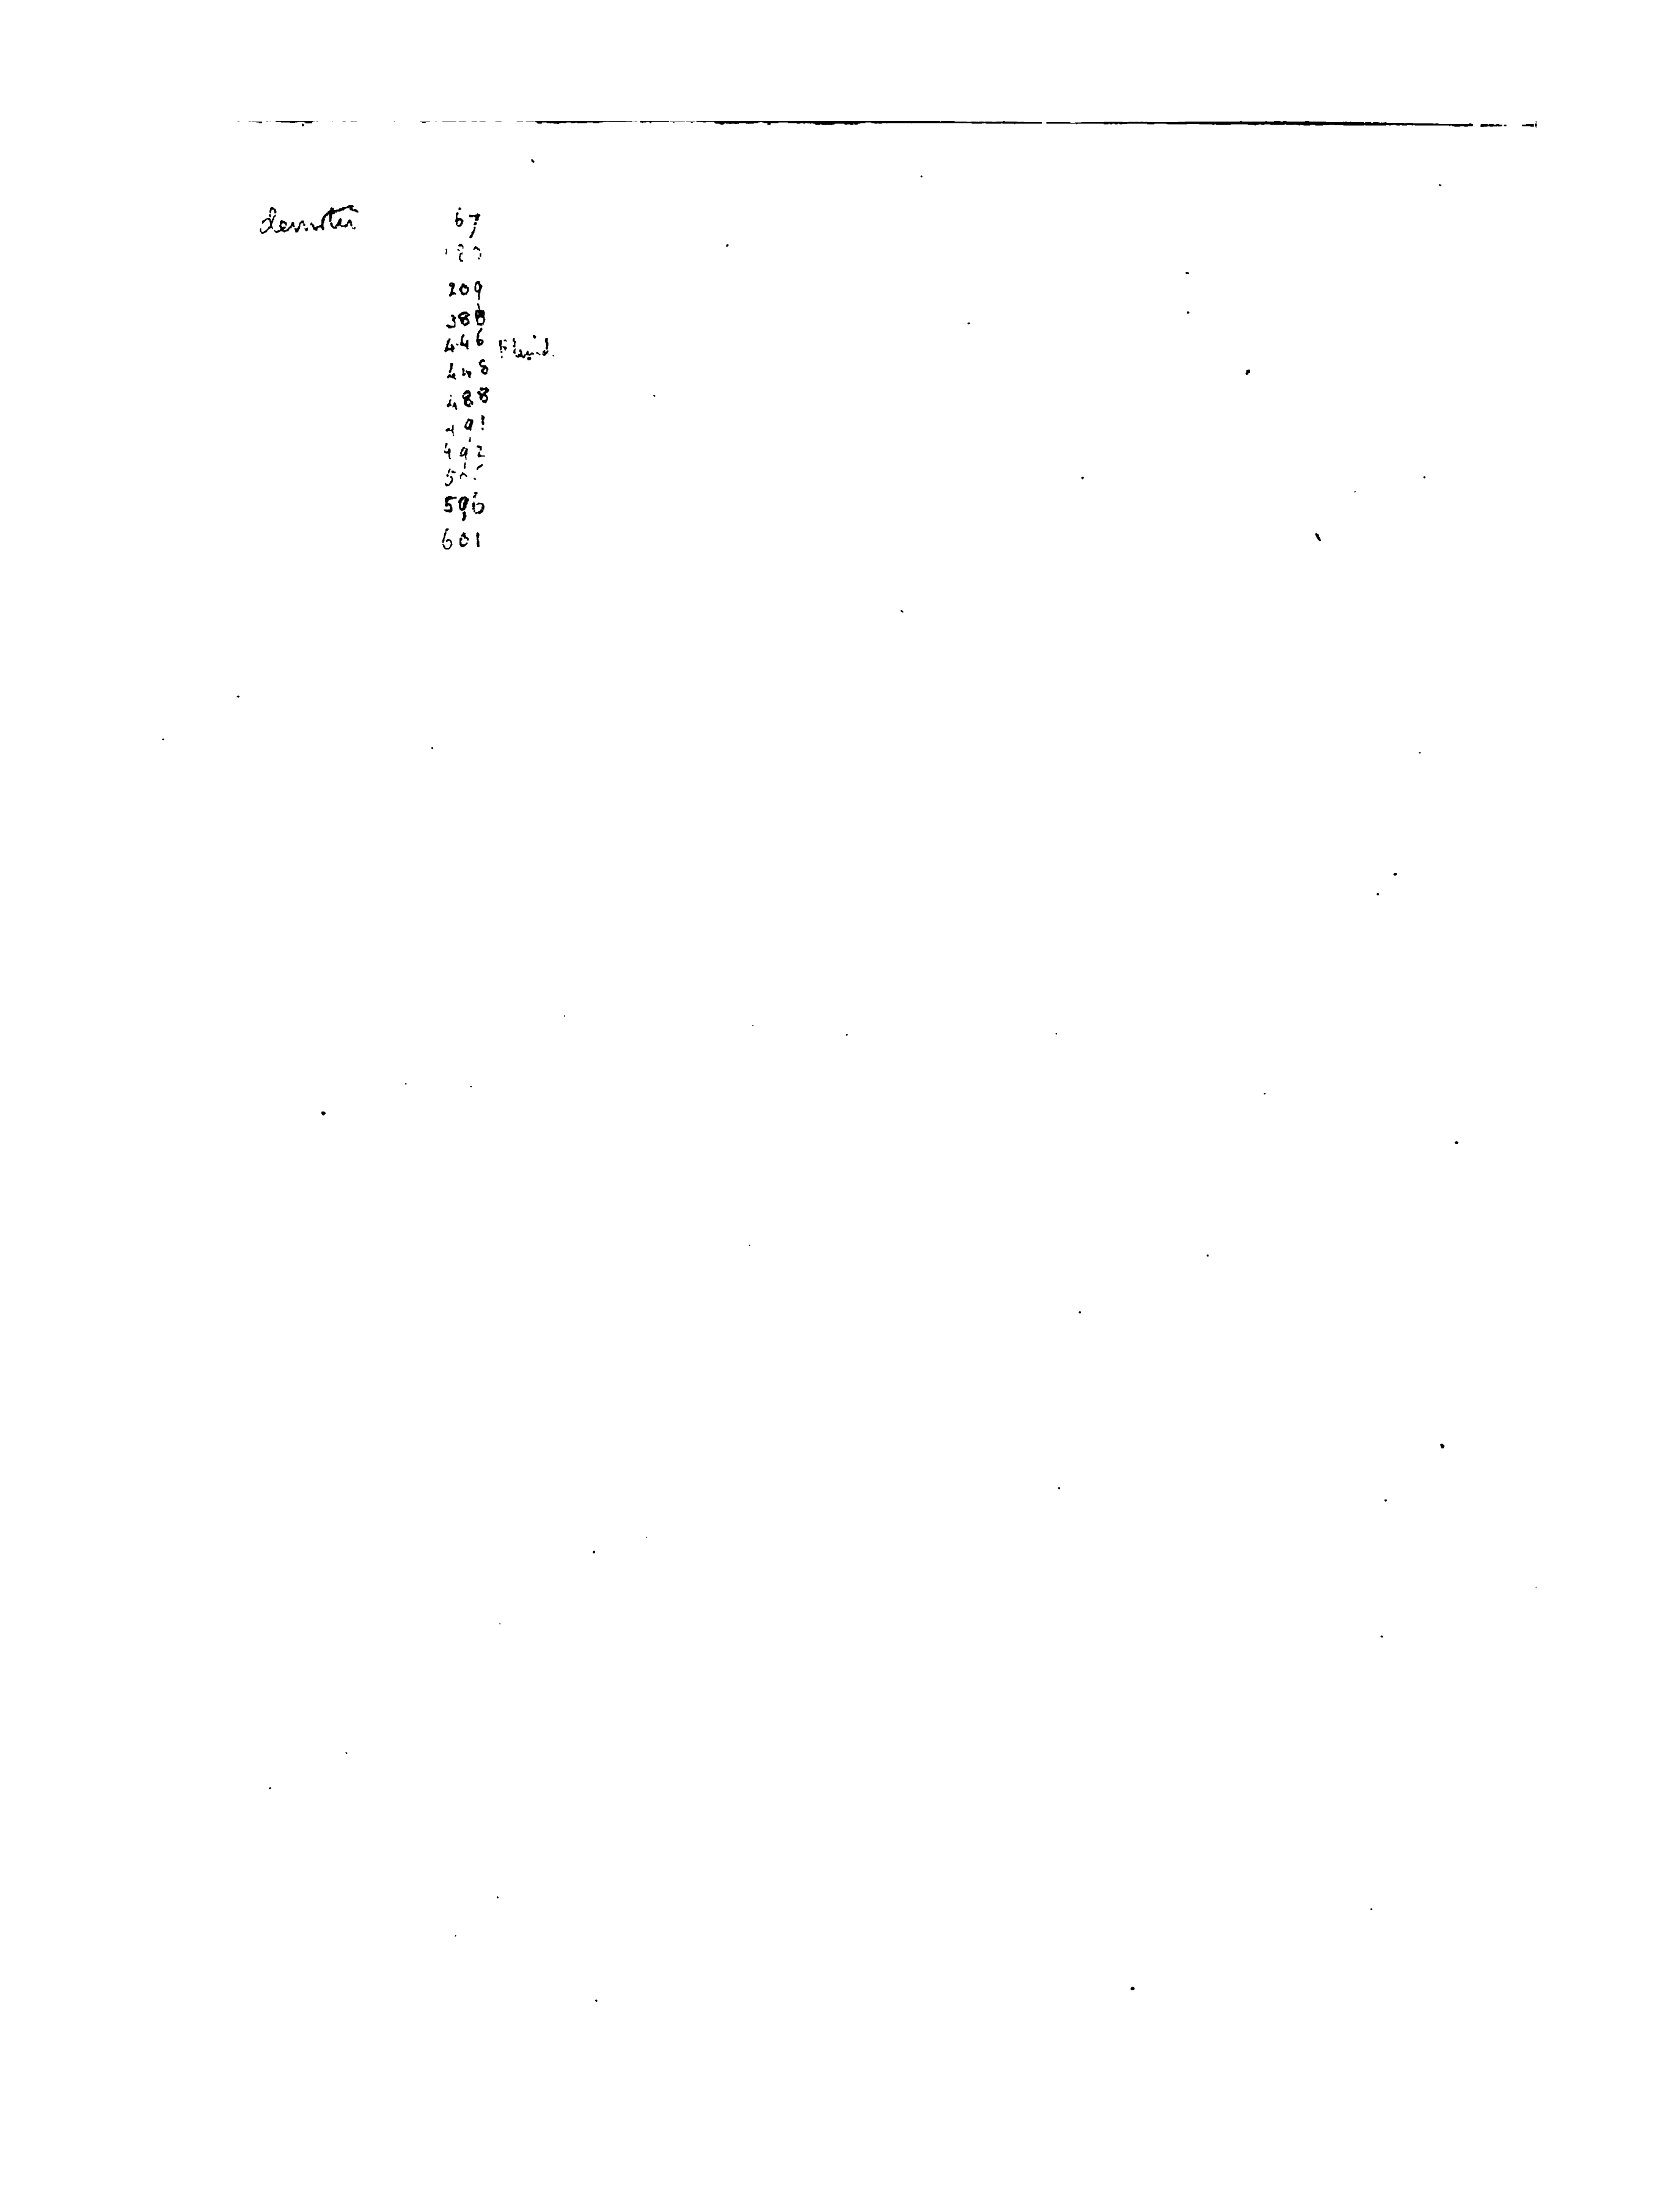 67
209
388
446 Fluid.
448
488
491
492
596
601